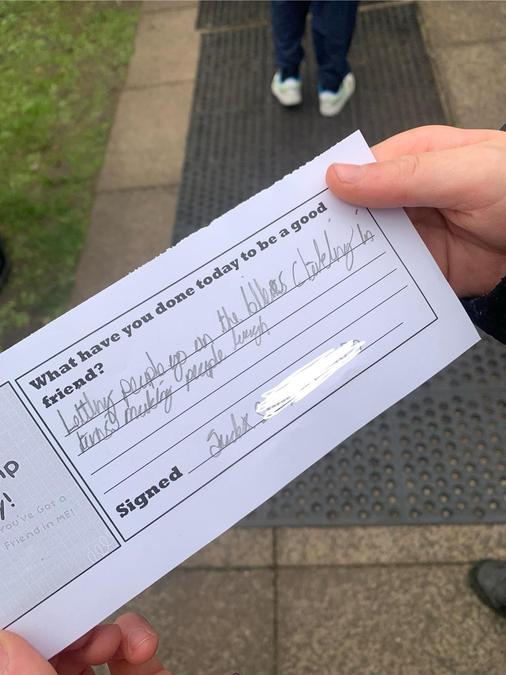 What have you done today to be a good
friend?
Lotting people go on the bikes (takeing in
turns) making people laugh
Signed
ip
y!
You've Got a
Friend in ME!